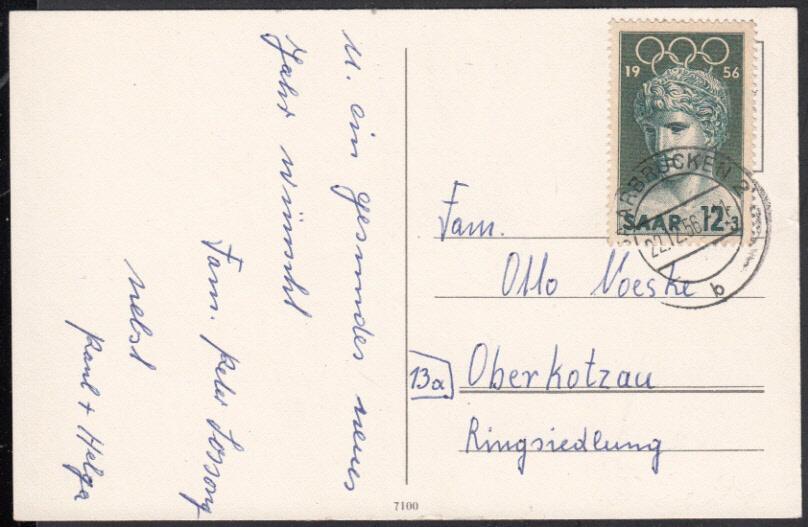 u. ein gesundes neues
Jahr wünscht
Fam. Peter Lossong
nebst
Paul + Helga
19 56
SAAR 12+3
SAARBRÜCKEN 2
22.12.56
b
Fam.
Otto Noeske
13a Oberkotzau
Ringsiedlung
7100